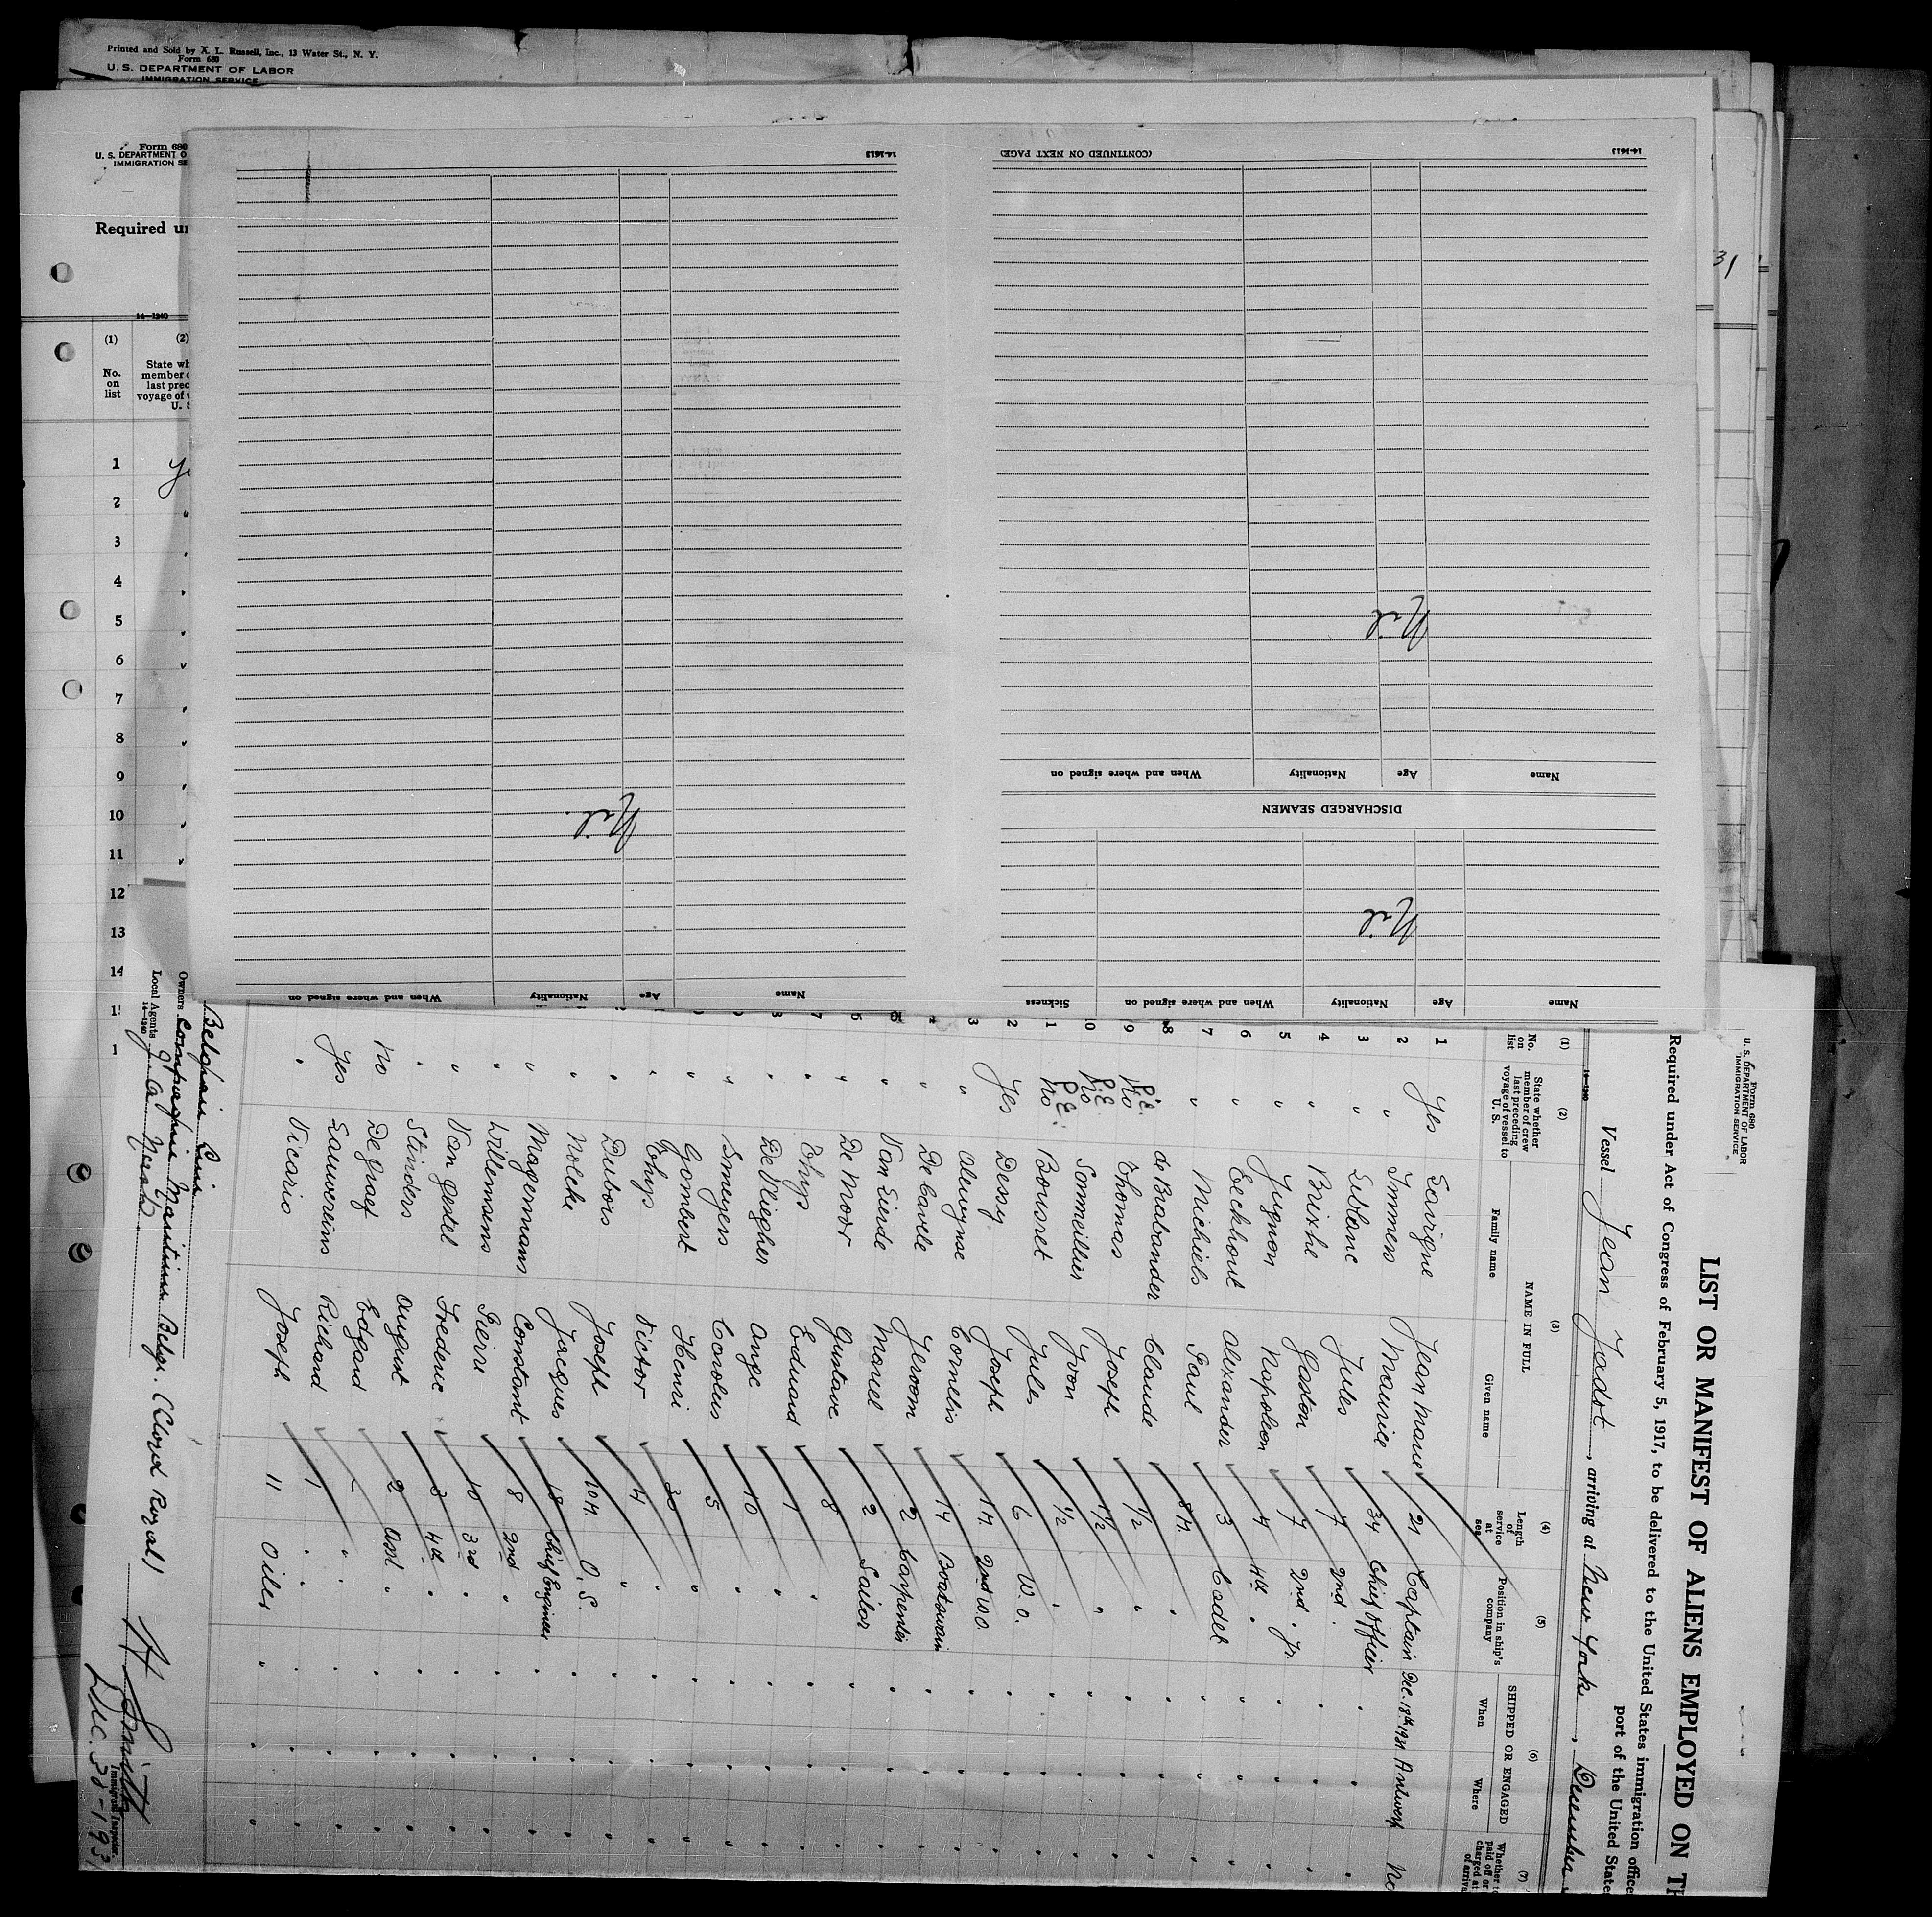 Printed and Sold by X. L. Russell, Inc., 13 Water St., N. Y.
Form 680
U. S. DEPARTMENT OF LABOR
IMMIGRATION SERVICE
Form 680
U. S. DEPARTMENT O
IMMIGRATION SE
Required un
14—1240
(1) (2)
No. on list
State wh
member o
last prec
voyage of v
U. S
1
2
3
4
5
6
7
8
9
10
11
12
13
14
31
14-1613
(CONTINUED ON NEXT PAGE)
14-1613
Nil
Name Age Nationality When and where signed on
DISCHARGED SEAMEN
Nil
Name Age Nationality When and where signed on Sickness
Nil.
Name Age Nationality When and where signed on
Form 680
U. S. DEPARTMENT OF LABOR
IMMIGRATION SERVICE
LIST OR MANIFEST OF ALIENS EMPLOYED ON TH
Required under Act of Congress of February 5, 1917, to be delivered to the United States immigration office
port of the United State
Vessel Jean Jadot, arriving at New York, December
14—1240
(1) (2) (3) (4) (5) (6) (7)
No. on list
State whether member of crew last preceding voyage of vessel to U. S.
NAME IN FULL
Family name Given name
Length of service at sea
Position in ship's company
SHIPPED OR ENGAGED
When Where
1 Yes Jean Marie 21 Captain Dec. 18th 1931 Antwerp No
2 " Immens Maurice 34 Chief Officer
3 " Leblanc Jules 7 2nd
4 " Brixhe Gaston 7 2nd Jr.
5 " Jugnon Napoleon 4 4th
6 " Eeckhout Alexander 3 Cadet
7 " Michiels Paul 8 M. "
8 P.E. No de Brabander Claude 1/2 "
9 P.E. No Thomas Joseph 1/2 "
10 P.E. No Sommeillier Yvon 1/2 "
1 Bousret Jules 6 W. O.
2 Yes Dessy Joseph 1 M. 2nd W.O.
3 " Cornelis 14 Boatswain
4 " De Cavele Jeroom 2 Carpenter
Van Lierde Marcel 2 Sailor
De Moor Gustave 8 "
Thys Eduard 1 "
De Vliegher Ange 10 "
Smeyers Carolus 5 "
Gombert Henri 30 "
Thys Victor 4 "
Dubois Joseph 10 M. O. S.
Nolcke Jacques 18 Chief Engineer
Magermans Constant 8 2nd "
Willemsens Pierre 10 3rd "
Van Gestel Frederic 3 4th "
Stinders August 2 Asst "
No De Graef Edgard "
Yes Lauwereins Richard 1 "
" Vicario Joseph 11 Oiler
Belgian Line
Owners Compagnie Maritime Belge. (Lloyd Royal)
Local Agents
14—1240
Smith
Immigrant Inspector.
Dec. 30-193